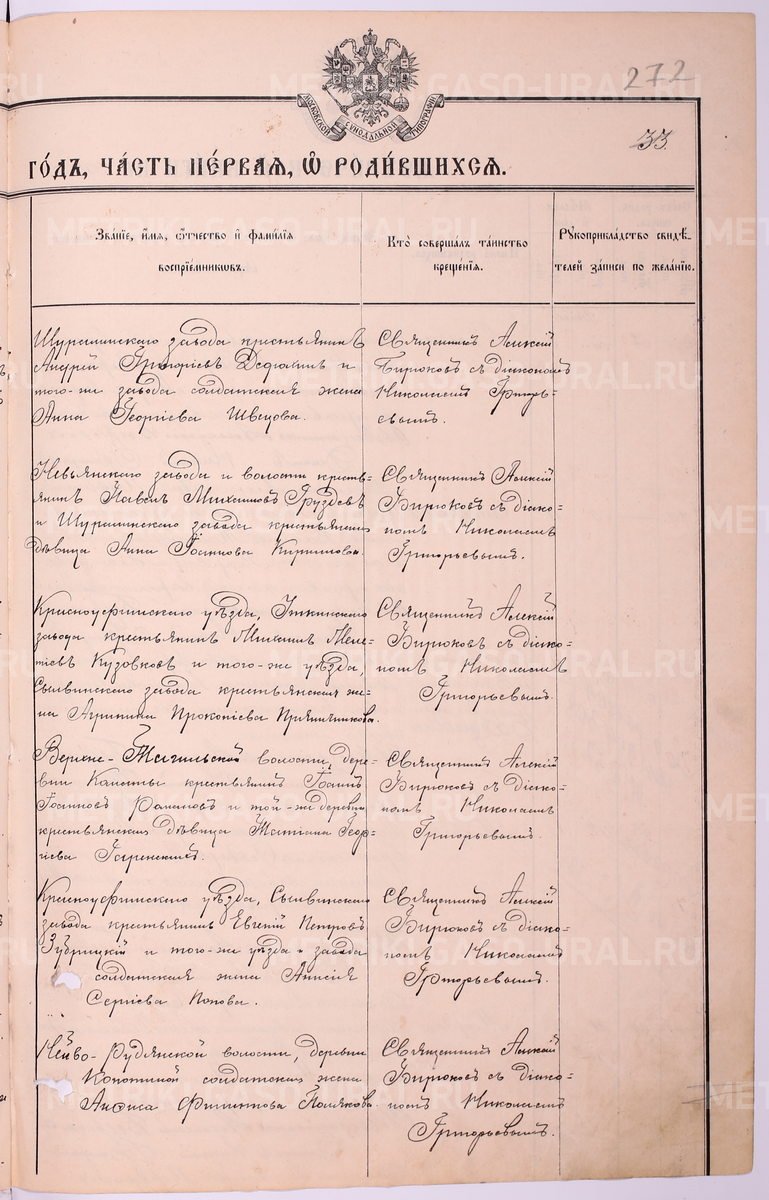 272
МОСКОВСКОЙ СѴНОДАЛЬНОЙ ТИПОГРАФІИ
33.
ГО́ДЪ, ЧА́СТЬ ПЕ́РВАЯ, Ѽ РОДИ́ВШИХСЯ.
Зва́нїе, и҆́мя, ѻ҆́тчество и҆ фами́лїя
воспрїе́мниковъ.
Кто̀ соверша́лъ та́инство
креще́нїя.
Рꙋкоприкла́дство свидѣ́-
телей за́писи по жела́нїю.
Шуралинскаго завода крестьянинъ
Андрей Григорьевъ и
того-же завода солдатская жена
Анна Георгіева Швецова.
Священникъ Алексій
Бирюковъ съ діакономъ
Николаемъ Григорь-
евымъ.
Невьянскаго завода и волости кресть-
янинъ Павелъ Михаиловъ Груздевъ
и Шуралинскаго завода крестьянская
дѣвица Анна Іоаннова Кириллова.
Священникъ Алексій
Бирюковъ съ діако-
номъ Николаемъ
Григорьевымъ.
Красноуфимскаго уѣзда, Уткинскаго
завода крестьянинъ Михаилъ Меле-
тіевъ Кузовковъ и того-же уѣзда,
Сылвинскаго завода крестьянская же-
на Агрипина Прокопіева Прянишникова.
Священникъ Алексій
Бирюковъ съ діако-
номъ Николаемъ
Григорьевымъ.
Верхне-Тагильской волости, дере-
вни Калаты крестьянинъ Іоаннъ
Іоанновъ Романовъ и той-же деревни
крестьянская дѣвица Татіана Геор-
гіева
Священникъ Алексій
Бирюковъ съ діако-
номъ Николаемъ
Григорьевымъ.
Красноуфимскаго уѣзда, Сылвинскаго
завода крестьянинъ Евгеній Петровъ
Зубрицкій и того-же уѣзда и завода
солдатская жена Анисія
Сергіева Попова.
Священникъ Алексій
Бирюковъ съ діако-
номъ Николаемъ
Григорьевымъ.
Нейво-Рудянской волости, деревни
солдатская жена
Анфиса Филиппова Полякова.
Священникъ Алексій
Бирюковъ съ діако-
номъ Николаемъ
Григорьевымъ.